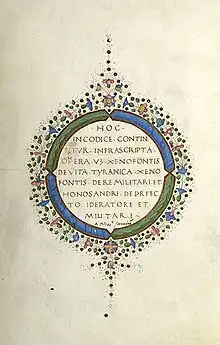 · HOC ·
IN CODICE · CONTIN
ETVR · INFRASCRIPTA ·
OPERA · V3 · XENOFONTIS
DE VITA · TYRANICA · XENO
FONTIS · DE RE MILITARI · ET
HONOSANDRI · DE PRFEC
TO · IDERATORI ET
MILITAR · I